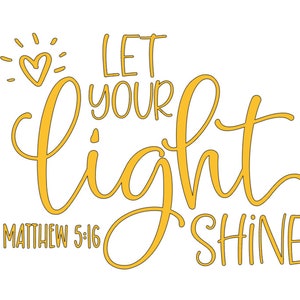 LET
YOUR
light
MATTHEW 5:16
SHINE